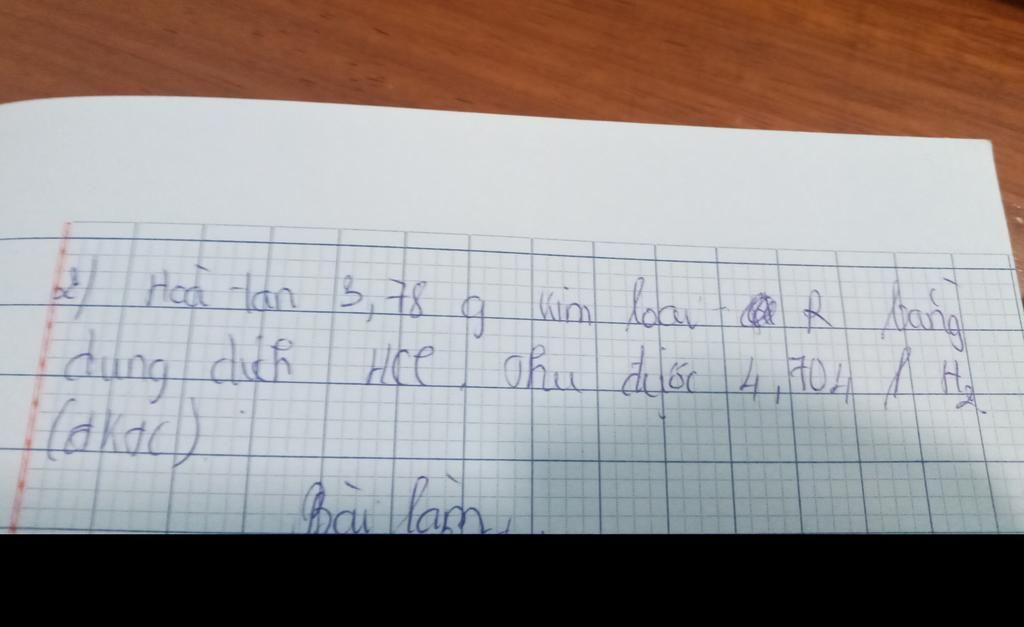 2) Hoà tan 3,78 g kim loại R bằng
dung dịch HCl thu được 4,704 l H₂
(đkđc)
Bài làm